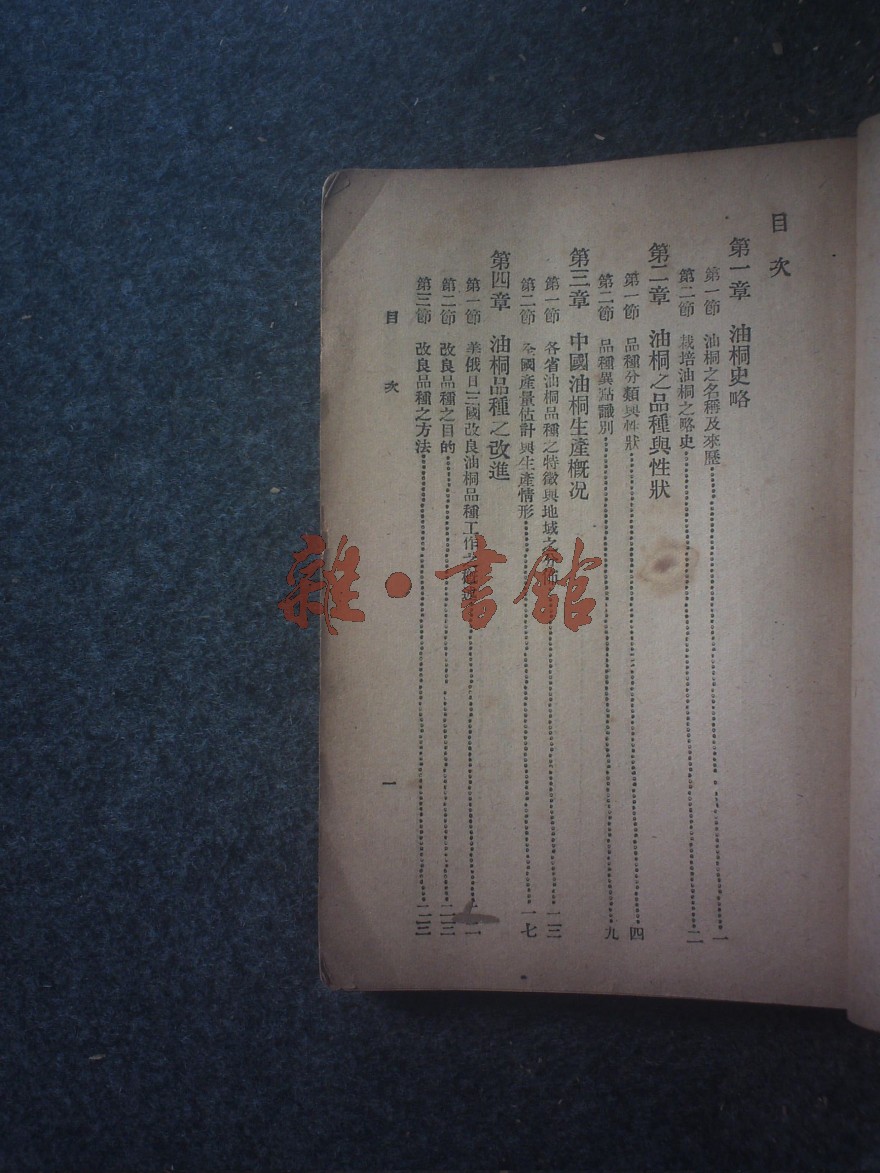 目次
第一章 油桐史略
第一節 油桐之名稱及來歷 一
第二節 栽培油桐之略史 二
第二章 油桐之品種與性狀
第一節 品種分類與性狀 四
第二節 品種異點識別 九
第三章 中國油桐生產槪况
第一節 各省油桐品種之特徵與地域之 一三
第二節 全國產量估計與生產情形 一七
第四章 油桐品種之改進
第一節 美俄日三國改良油桐品種工作
第二節 改良品種之目的 二三
第三節 改良品種之方法 二三
目次
一
雜·書館